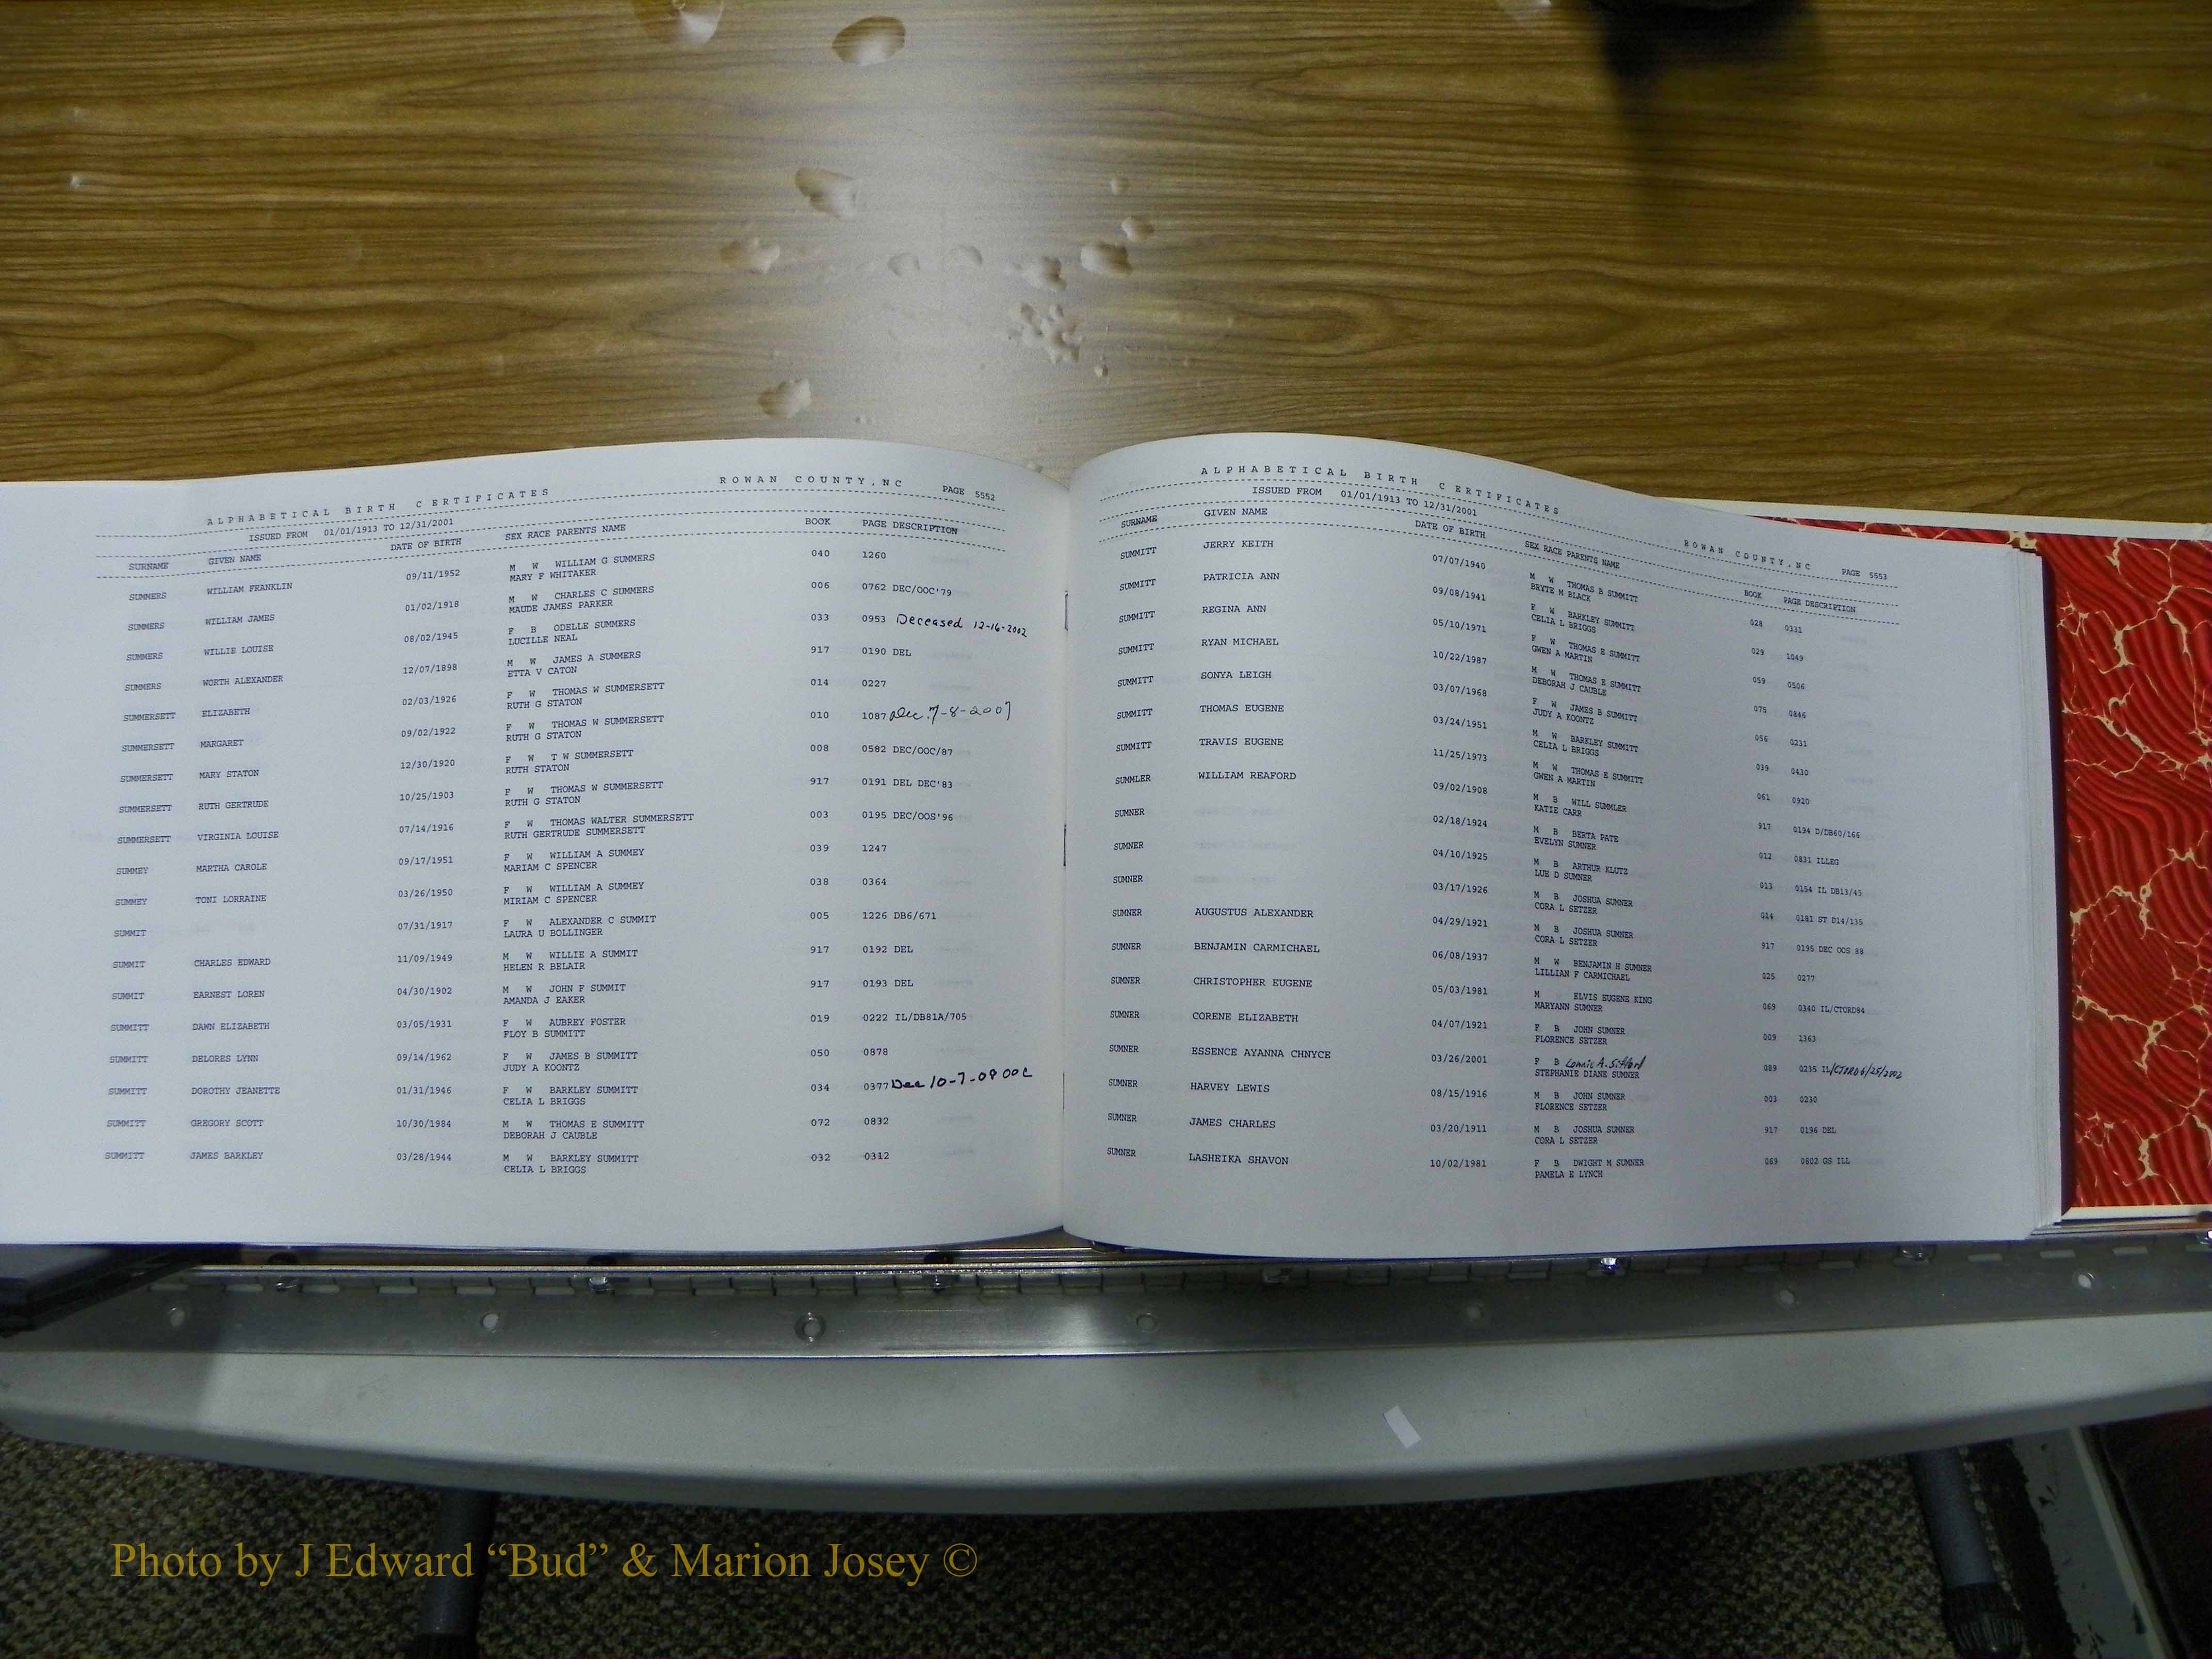 ALPHABETICAL BIRTH CERTIFICATES ROWAN COUNTY,NC PAGE 5552
ISSUED FROM 01/01/1913 TO 12/31/2001
SURNAME GIVEN NAME DATE OF BIRTH SEX RACE PARENTS NAME BOOK PAGE DESCRIPTION
SUMMERS WILLIAM FRANKLIN 09/11/1952 M W WILLIAM G SUMMERS 040 1260
MARY F WHITAKER
SUMMERS WILLIAM JAMES 01/02/1918 M W CHARLES C SUMMERS 006 0762 DEC/OOC'79
MAUDE JAMES PARKER
SUMMERS WILLIE LOUISE 08/02/1945 F B ODELLE SUMMERS 033 0953 Deceased 12-16-2002
LUCILLE NEAL
SUMMERS WORTH ALEXANDER 12/07/1898 M W JAMES A SUMMERS 917 0190 DEL
ETTA V CATON
SUMMERSETT ELIZABETH 02/03/1926 F W THOMAS W SUMMERSETT 014 0227
RUTH G STATON
SUMMERSETT MARGARET 09/02/1922 F W THOMAS W SUMMERSETT 010 1087 Dec. 7-8-2007
RUTH G STATON
SUMMERSETT MARY STATON 12/30/1920 F W T W SUMMERSETT 008 0582 DEC/OOC/87
RUTH STATON
SUMMERSETT RUTH GERTRUDE 10/25/1903 F W THOMAS W SUMMERSETT 917 0191 DEL DEC'83
RUTH G STATON
SUMMERSETT VIRGINIA LOUISE 07/14/1916 F W THOMAS WALTER SUMMERSETT 003 0195 DEC/OOS'96
RUTH GERTRUDE SUMMERSETT
SUMMEY MARTHA CAROLE 09/17/1951 F W WILLIAM A SUMMEY 039 1247
MARIAM C SPENCER
SUMMEY TONI LORRAINE 03/26/1950 F W WILLIAM A SUMMEY 038 0364
MIRIAM C SPENCER
SUMMIT 07/31/1917 F W ALEXANDER C SUMMIT 005 1226 DB6/671
LAURA U BOLLINGER
SUMMIT CHARLES EDWARD 11/09/1949 M W WILLIE A SUMMIT 917 0192 DEL
HELEN R BELAIR
SUMMIT EARNEST LOREN 04/30/1902 M W JOHN F SUMMIT 917 0193 DEL
AMANDA J EAKER
SUMMITT DAWN ELIZABETH 03/05/1931 F W AUBREY FOSTER 019 0222 IL/DB81A/705
FLOY B SUMMITT
SUMMITT DELORES LYNN 09/14/1962 F W JAMES B SUMMITT 050 0878
JUDY A KOONTZ
SUMMITT DOROTHY JEANETTE 01/31/1946 F W BARKLEY SUMMITT 034 0377 Dec 10-7-08 OOC
CELIA L BRIGGS
SUMMITT GREGORY SCOTT 10/30/1984 M W THOMAS E SUMMITT 072 0832
DEBORAH J CAUBLE
SUMMITT JAMES BARKLEY 03/28/1944 M W BARKLEY SUMMITT 032 0312
CELIA L BRIGGS
ALPHABETICAL BIRTH CERTIFICATES ROWAN COUNTY,NC PAGE 5553
ISSUED FROM 01/01/1913 TO 12/31/2001
SURNAME GIVEN NAME DATE OF BIRTH SEX RACE PARENTS NAME BOOK PAGE DESCRIPTION
SUMMITT JERRY KEITH 07/07/1940 M W THOMAS B SUMMITT 028 0331
BRYTE M BLACK
SUMMITT PATRICIA ANN 09/08/1941 F W BARKLEY SUMMITT 029 1049
CELIA L BRIGGS
SUMMITT REGINA ANN 05/10/1971 F W THOMAS E SUMMITT 059 0506
GWEN A MARTIN
SUMMITT RYAN MICHAEL 10/22/1987 M W THOMAS E SUMMITT 075 0846
DEBORAH J CAUBLE
SUMMITT SONYA LEIGH 03/07/1968 F W JAMES B SUMMITT 056 0231
JUDY A KOONTZ
SUMMITT THOMAS EUGENE 03/24/1951 M W BARKLEY SUMMITT 039 0430
CELIA L BRIGGS
SUMMITT TRAVIS EUGENE 11/25/1973 M W THOMAS E SUMMITT 061 0920
GWEN A MARTIN
SUMMLER WILLIAM REAFORD 09/02/1908 M B WILL SUMMLER 917 0194 D/DB60/166
KATIE CARR
SUMNER 02/18/1924 M B BERTA PATE 012 0831 ILLEG
EVELYN SUMNER
SUMNER 04/10/1925 M B ARTHUR KLUTZ 013 0154 IL DB13/45
LUE D SUMNER
SUMNER 03/17/1926 M B JOSHUA SUMNER 014 0181 ST D14/135
CORA L SETZER
SUMNER AUGUSTUS ALEXANDER 04/29/1921 M B JOSHUA SUMNER 917 0195 DEC OOS 88
CORA L SETZER
SUMNER BENJAMIN CARMICHAEL 06/08/1937 M W BENJAMIN H SUMNER 025 0277
LILLIAN F CARMICHAEL
SUMNER CHRISTOPHER EUGENE 05/03/1981 M ELVIS EUGENE KING 069 0340 IL/CTORD84
MARYANN SUMNER
SUMNER CORENE ELIZABETH 04/07/1921 F B JOHN SUMNER 009 1363
FLORENCE SETZER
SUMNER ESSENCE AYANNA CHNYCE 03/26/2001 F B Lonnie A. Sifford 089 0235 IL/CTORD 6/25/2002
STEPHANIE DIANE SUMNER
SUMNER HARVEY LEWIS 08/15/1916 M B JOHN SUMNER 003 0230
FLORENCE SETZER
SUMNER JAMES CHARLES 03/20/1911 M B JOSHUA SUMNER 917 0196 DEL
CORA L SETZER
SUMNER LASHEIKA SHAVON 10/02/1981 F B DWIGHT M SUMNER 069 0802 GS ILL
PAMELA E LYNCH
Photo by J Edward “Bud” & Marion Josey ©